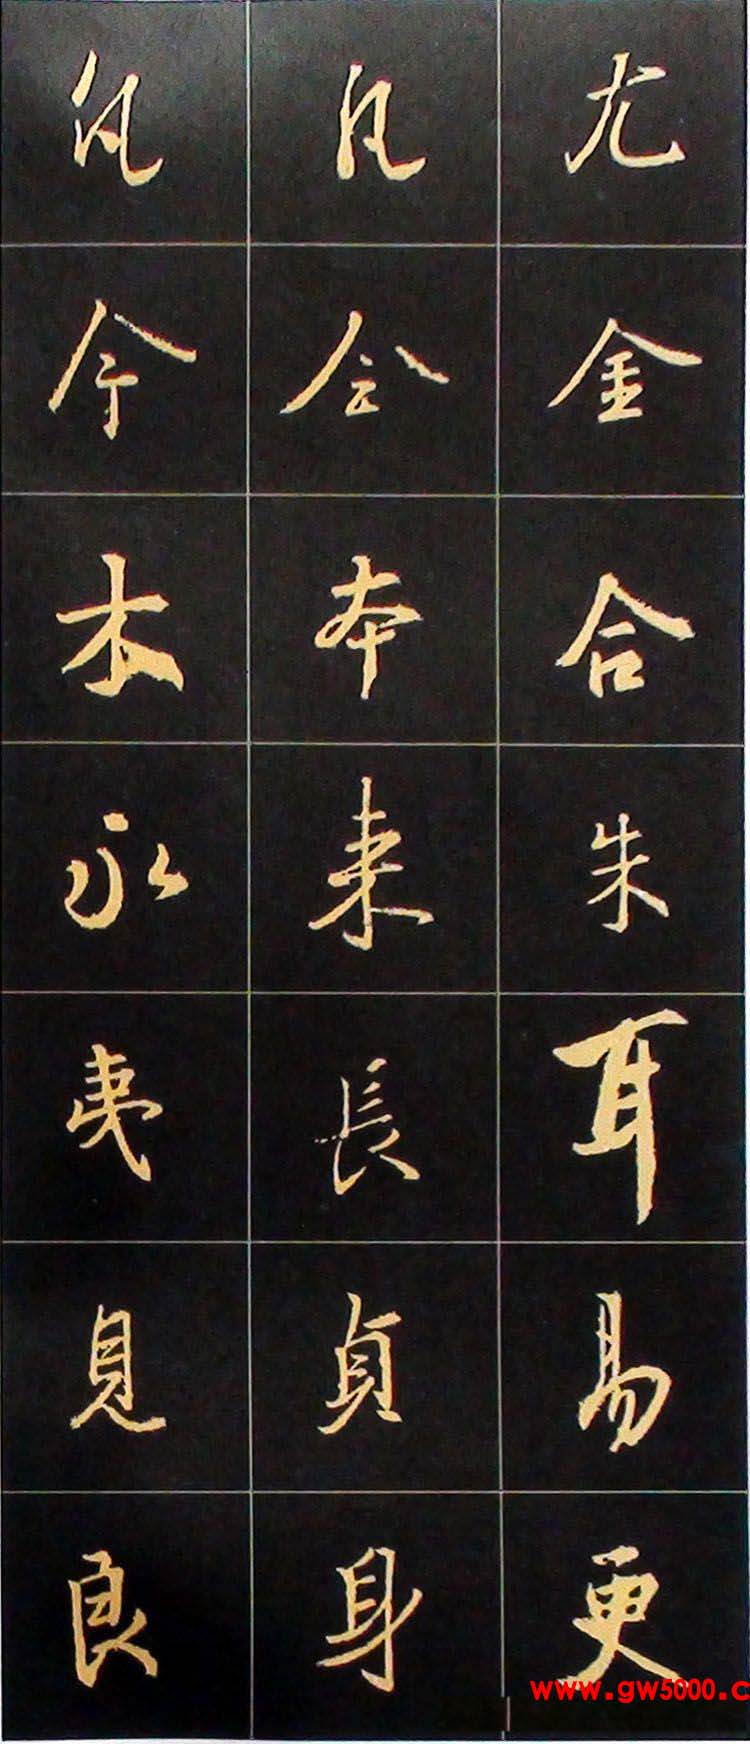 尤 凡
金 会 今
合 本 木
朱 来 永
耳 長 夷
易 貞 見
更 身 良
www.gw5000.c